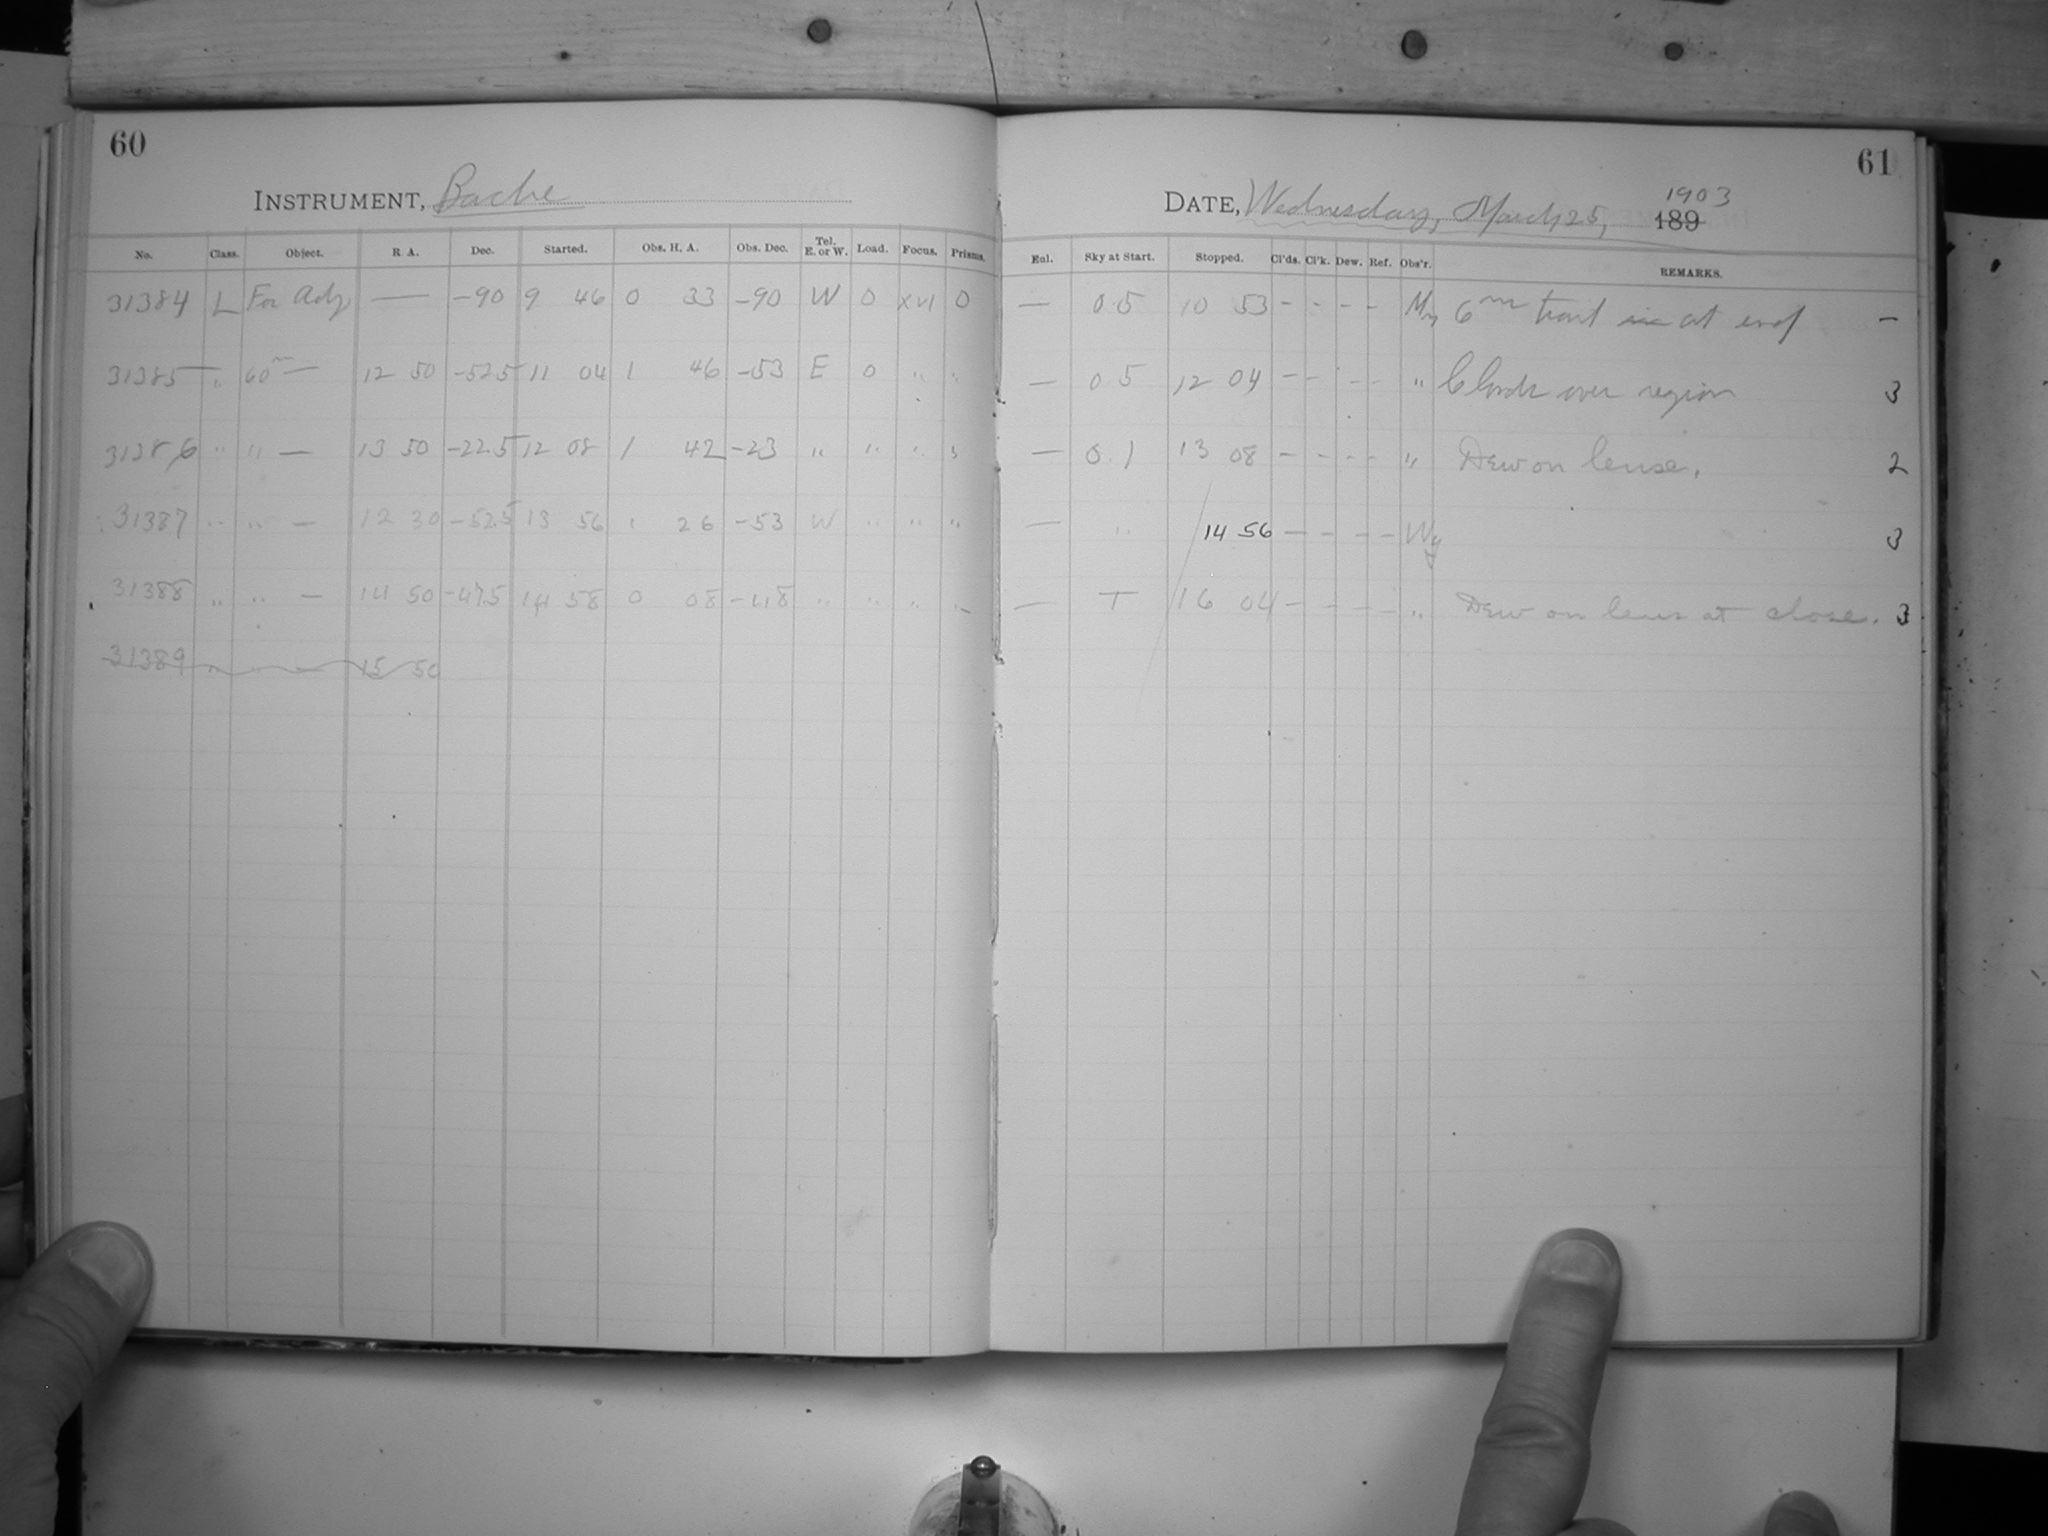 60
INSTRUMENT, Bache
No. Class. Object. R. A. Dec. Started. Obs. H. A. Obs. Dec. Tel. E. or W. Load. Focus. Prisms.
31384 L For Adj — -90 9 46 0 33 -90 W 0 XVI 0
31385 " 60m — 12 50 -52.5 11 04 1 46 -53 E 0 " "
31386 " " — 13 50 -22.5 12 08 1 42 -23 " " " "
31387 " " — 12 30 -52.5 13 56 1 26 -53 W " " "
31388 " " — 14 50 -47.5 14 58 0 08 -48 " " " "
31389 " " — 15 50
61
DATE, Wednesday, March 25, 1903
189
Enl. Sky at Start. Stopped. Cl'ds. Cl'k. Dew. Ref. Obs'r. REMARKS.
— 0.5 10 53 - - - - My 6m trail at end —
— 0.5 12 04 - - - - " Clouds over region 3
— 0.1 13 08 - - - - " Dew on lense. 2
— " 14 56 - - - - Wy 3
— T 16 04 - - - - " Dew on lens at close. 3